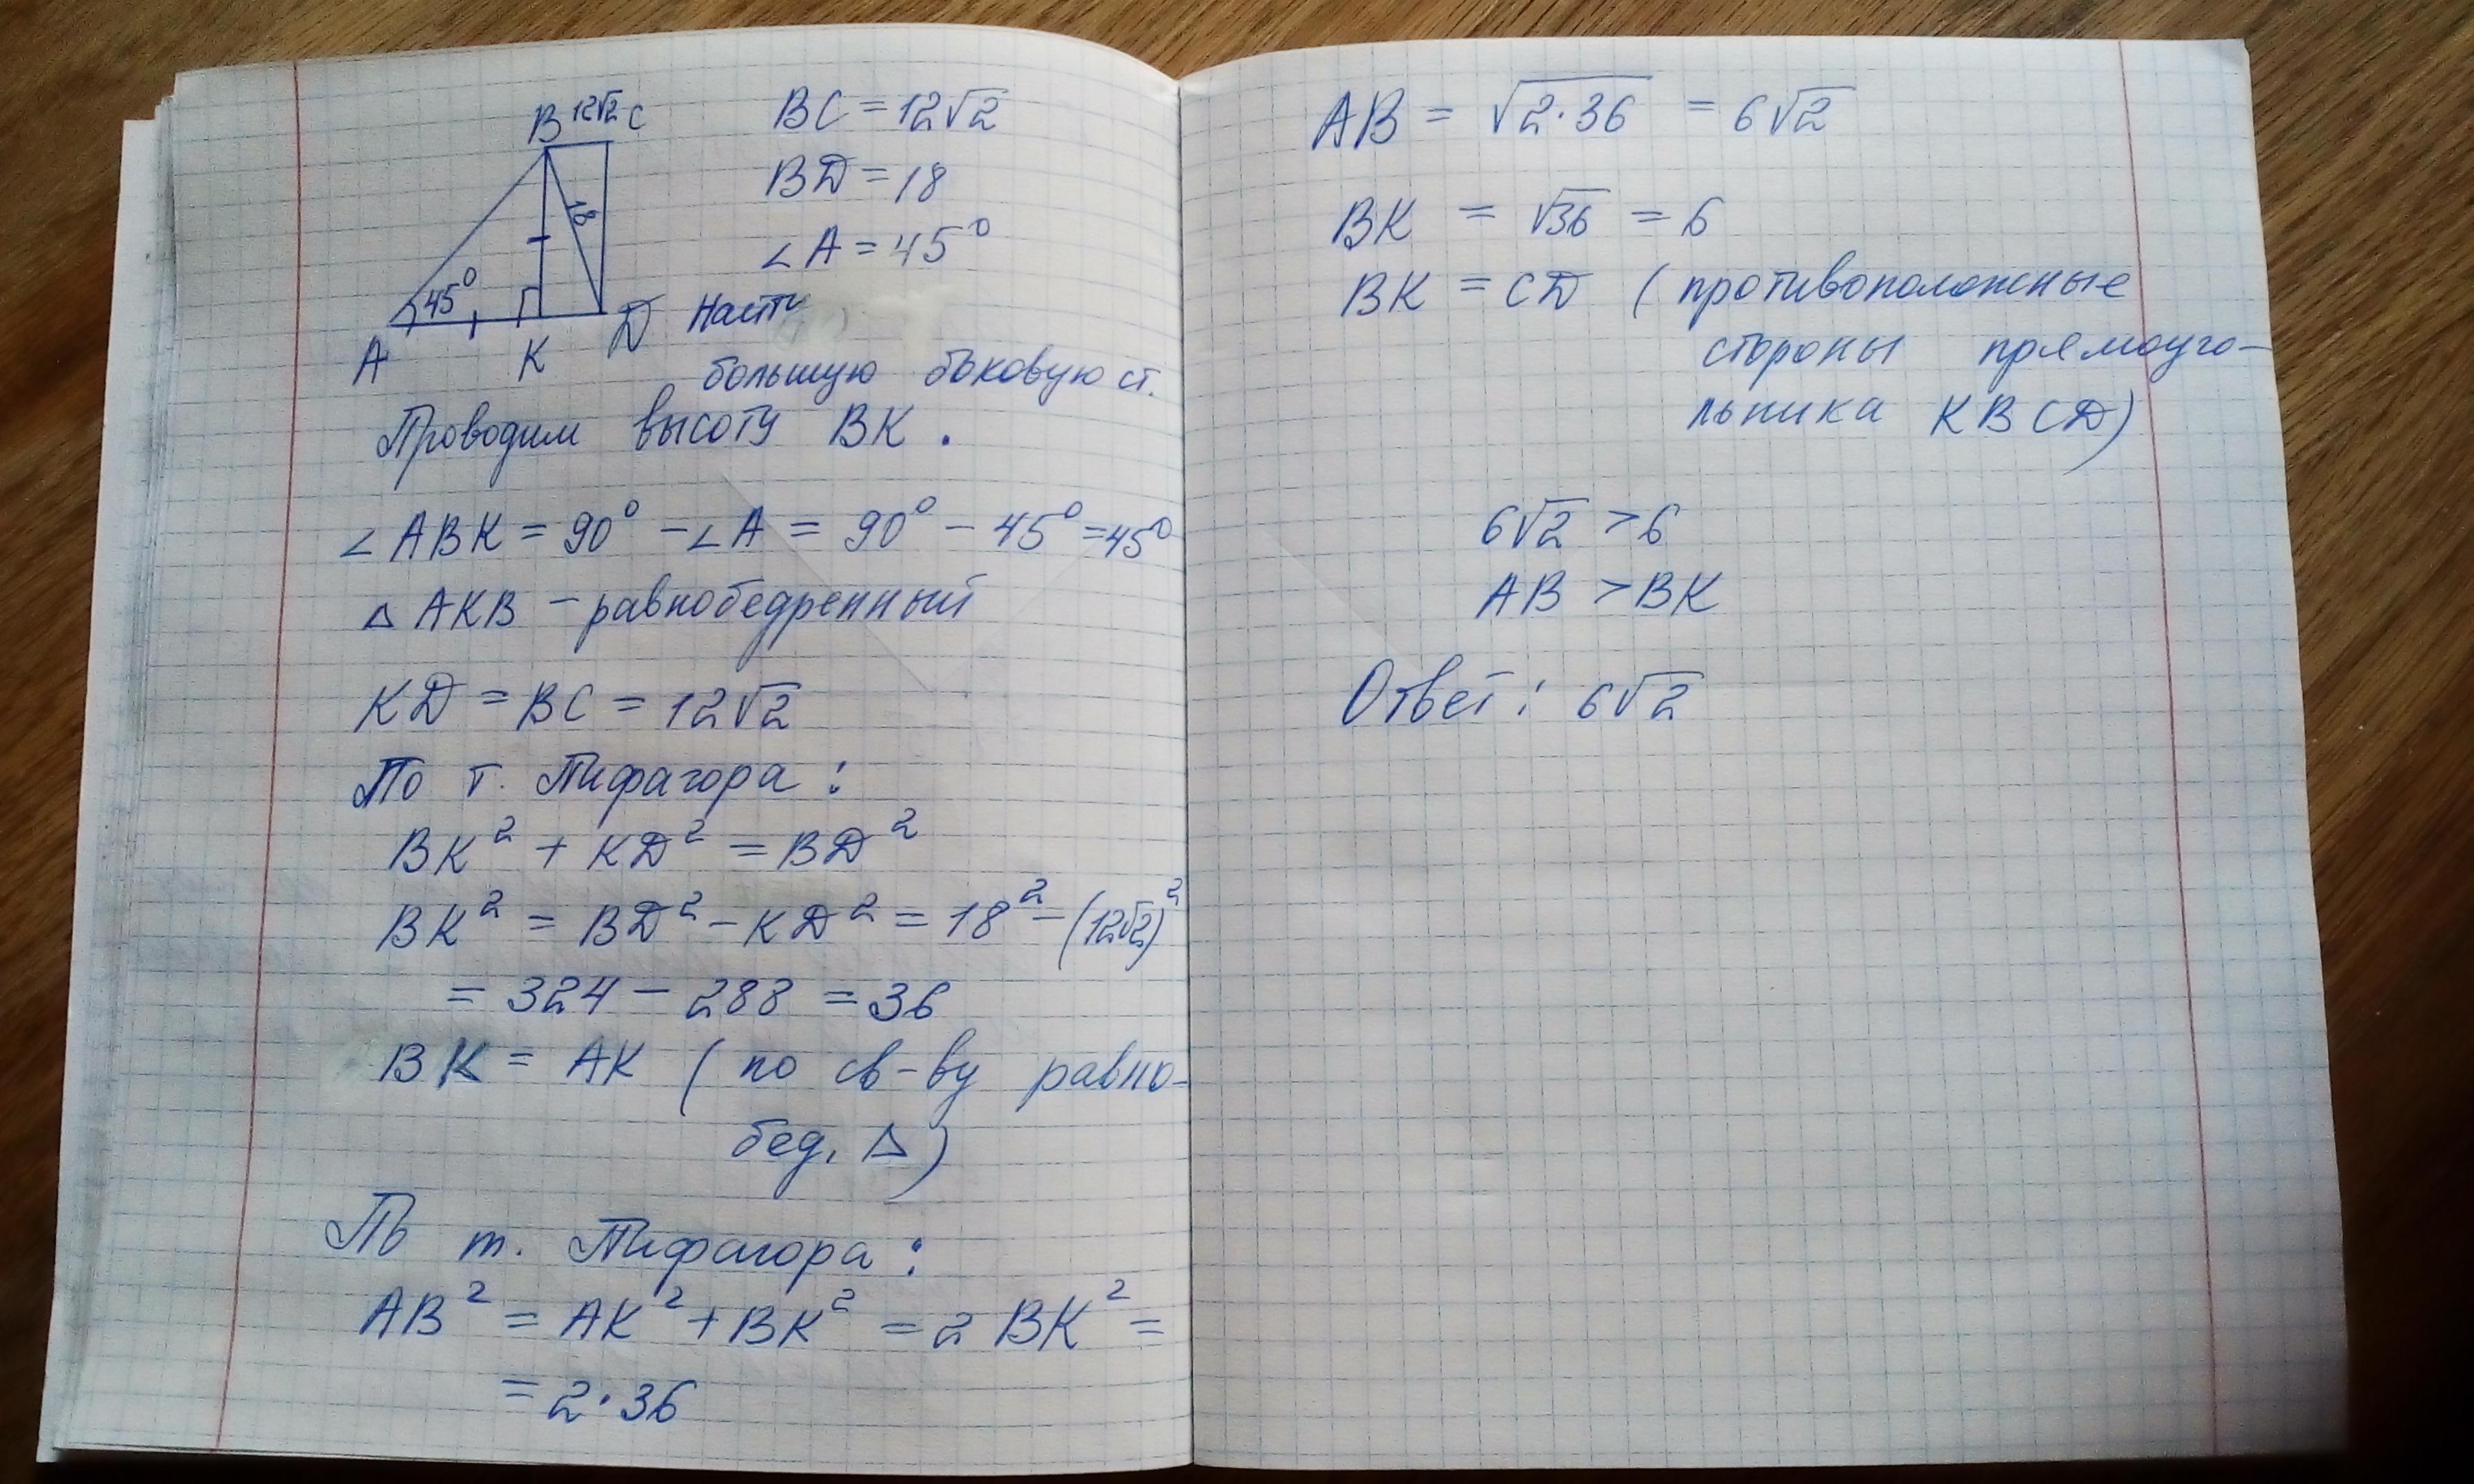 B 12√2 C
18
45°
A K D
BC = 12√2
BD = 18
∠A = 45°
Найти
большую боковую ст.
Проводим высоту BK.
∠ABK = 90° - ∠A = 90° - 45° = 45°
△ AKB - равнобедренный
KD = BC = 12√2
По т. Пифагора:
BK² + KD² = BD²
BK² = BD² - KD² = 18² - (12√2)²
= 324 - 288 = 36
BK = AK (по св-ву равно-
бед. △)
По т. Пифагора:
AB² = AK² + BK² = 2 BK² =
= 2·36
AB = √2·36 = 6√2
BK = √36 = 6
BK = CD (противоположные
стороны прямоуго-
льника KBCD)
6√2 > 6
AB > BK
Ответ: 6√2